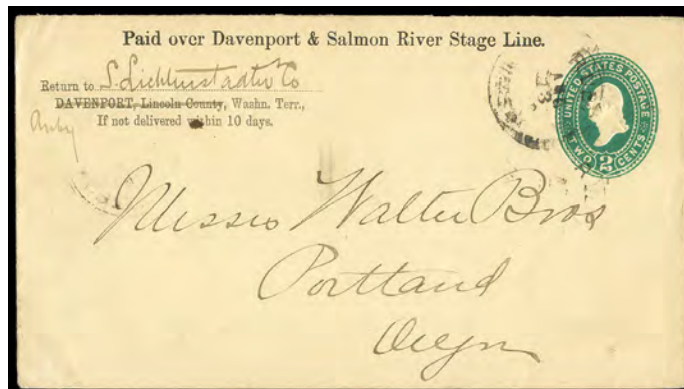 Paid over Davenport & Salmon River Stage Line.
Return to S. Lichtenstadter & Co
DAVENPORT, Lincoln County, Washn. Terr.,
If not delivered within 10 days.
UNITED STATES POSTAGE
TWO 2 CENTS
Messrs Walter Bros
Portland
Oregn